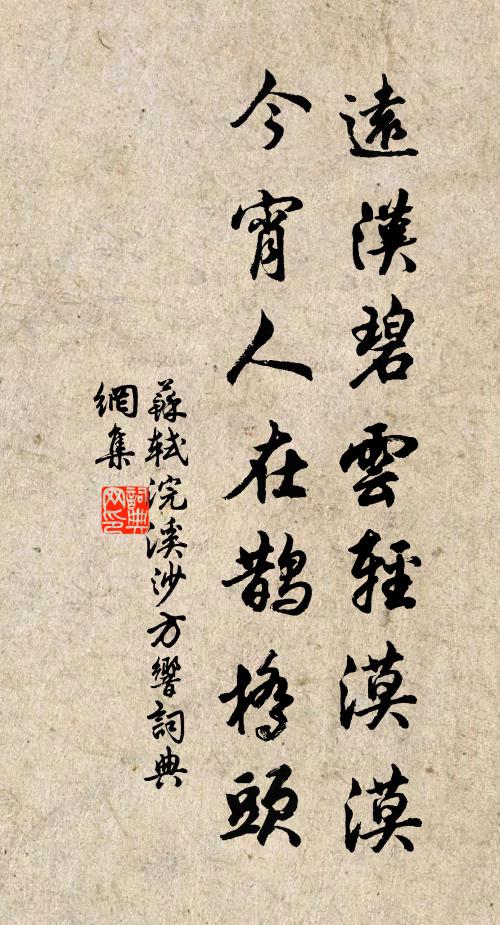 遠漢碧雲輕漠漠
今宵人在鵲橋頭
蘇軾浣溪沙方響詞典
網集
詞典網印